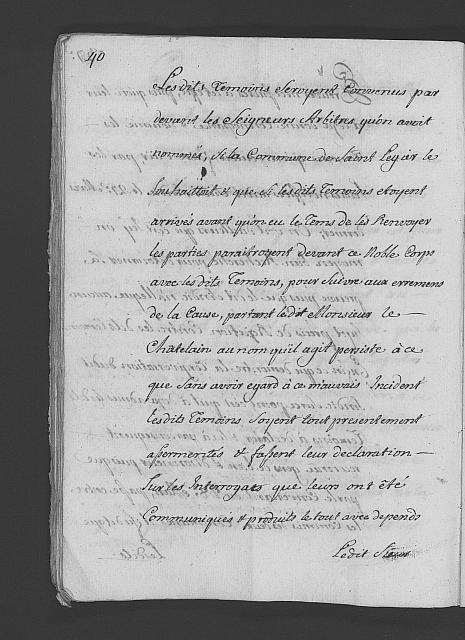 40
Lesdits Temoins Seroyent Convenus par
devant les Seigneurs Arbitres, qu'on avoit
nommés, Si la Commune de Saint Legier le
Souhaittoit & que Si lesdits Temoins etoyent
arrivés avant qu'on eu le Tems de les Renvoyer
les parties paraitroyent devant ce Noble Corps
avec lesdits Temoins, pour Suivre aux erremens
de la Cause, partant ledit Monsieur le —
Chatelain au nom qu'il agit persiste à ce
que Sans avoir egard à ce mauvais Incident
lesdits Temoins Soyent tout presentement
assermentés & fassent leur declaration —
Sur les Interrogats que leurs ont été
Communiqués & produits le tout avec depends
Ledit Sieur